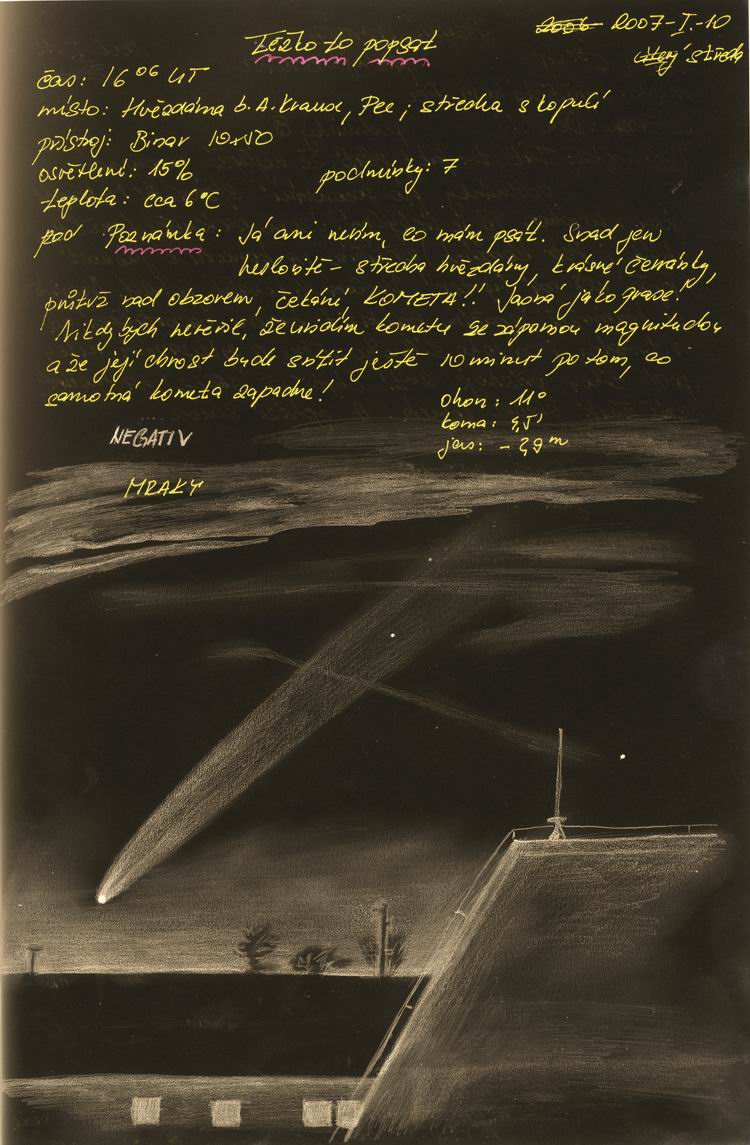 Těžko to popsat
2006 2007-I.-10
úterý středa
čas: 16 06 UT
místo: Hvězdárna b. A. Krause, Pce; střecha s kopulí
přístroj: Binar 10x50
osvětlení: 15% podmínky: 7
teplota: cca 6°C
pod Poznámka: Já ani nevím, co mám psát. Snad jen
heslovitě - střecha hvězdárny, krásné červánky,
průtrž nad obzorem, čekání, KOMETA!! Jasná jako prase!
Nikdy bych nevěřil, že uvidím kometu se zápornou magnitudou
a že její chvost bude svítit ještě 10 minut po tom, co
samotná kometa zapadne!
Ohon: 11°
koma:
jas:
NEGATIV
MRAKY